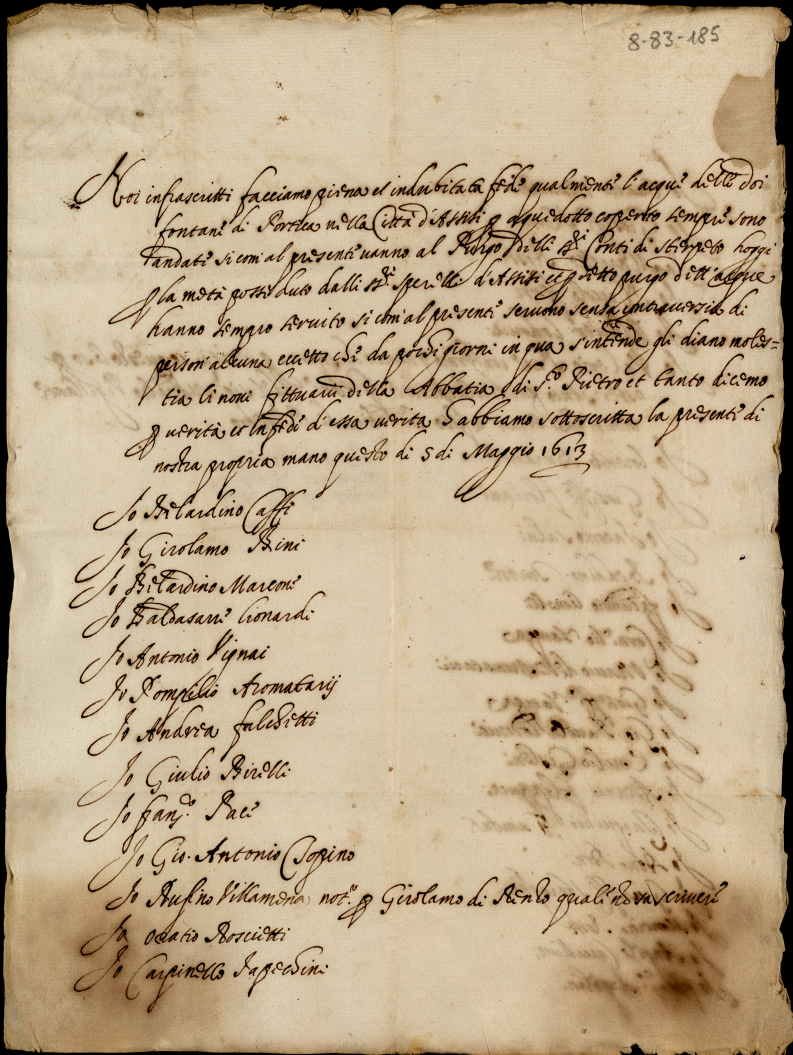 8-83-185
Noi infrascritti facciamo piena et indubitata fede qualmente l'acque delle doi
fontane di Portica nella Città d'Assisi p aquedotto coperto sempre sono
andate si com'al presente vanno al Purgo delli ss.ri Conti di Sterpeto hoggi
p la metà posseduto dalli ss.ri Sperelli d'Assisi et p detto purgo dett'acque
hanno sempre servito si com'al presente servono senza controversia di
person'alcuna eccetto che da pochi giorni in qua s'intende gli diano moles=
tia li novi fittuarii della Abbatia di s.to Pietro et tanto dicemo
p verità et In fede d'essa verità habbiamo sottoscritta la presente di
nostra propria mano questo di 5 di Maggio 1613
Io Belardino Caffi
Io Girolamo Bini
Io Belardino Marcone
Io Baldasarre Lionardi
Io Antonio Vignai
Io Pompilio Aromatarij
Io Andrea falchetti
Io Giulio Birelli
Io fran.co Pace
Io Gio. Antonio
Io Rufino Villamena not.o p Girolamo di Renzo quale no sa scrivere
Io Oratio Roscietti
Io Carpinello